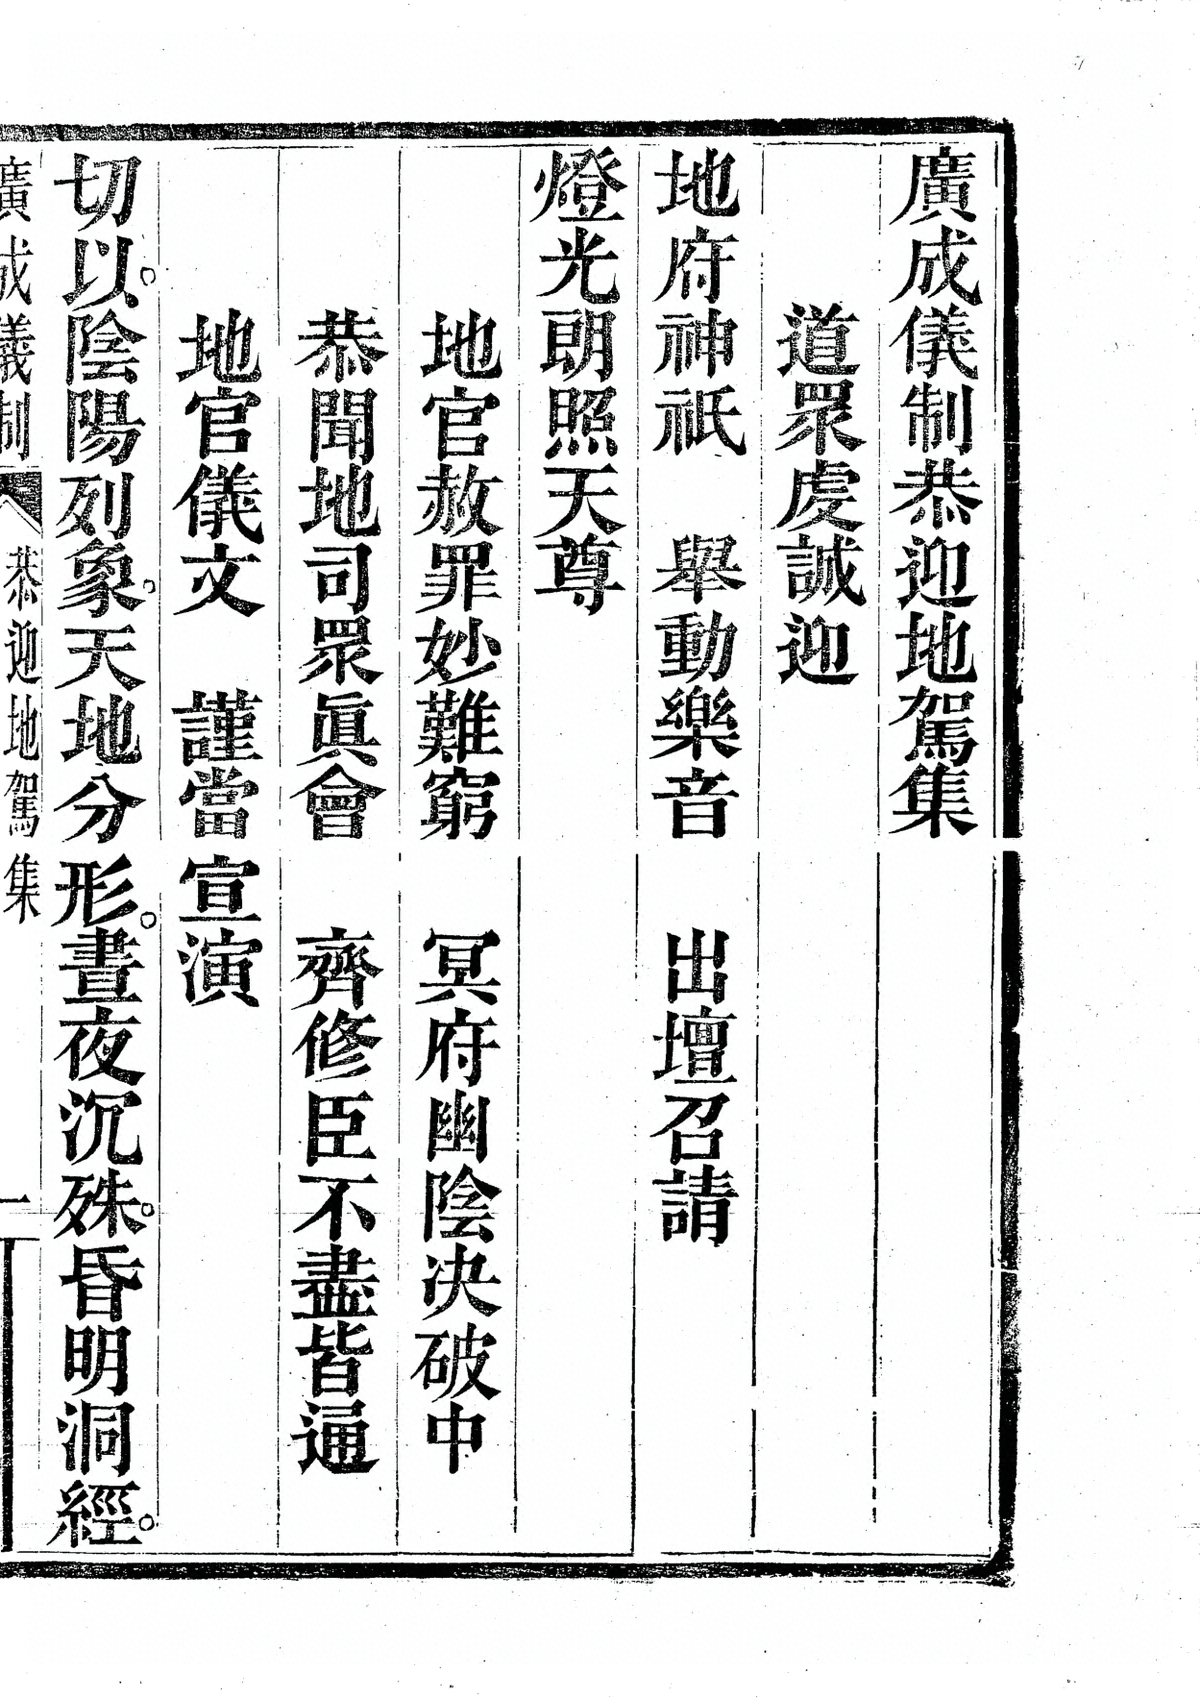 廣成儀制恭迎地駕集
道眾虔誠迎
地府神祇　舉動樂音　出壇召請
燈光朗照天尊
地官赦罪妙難窮　冥府幽陰決破中
恭聞地司眾眞會　齊修臣不盡皆通
地官儀文　謹當宣演
切以。陰陽列象。天地分形。晝夜沉殊。昏明洞經。
廣成儀制　恭迎地駕集　一